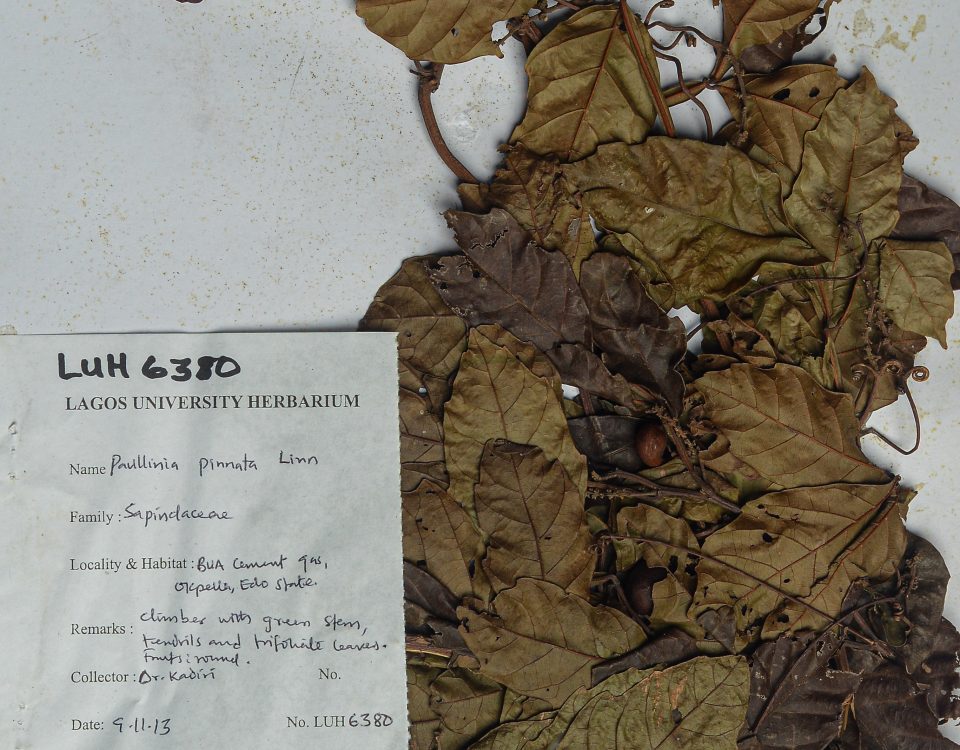 LUH 6380
LAGOS UNIVERSITY HERBARIUM
Name Paullinia pinnata Linn
Family : Sapindaceae
Locality & Habitat : BUA Cement gas,
Okpella, Edo State.
Remarks : climber with green stem,
tendrils and trifoliate leaves.
fruits round.
Collector : Dr. Kadiri No.
Date: 9.11.13 No. LUH 6380